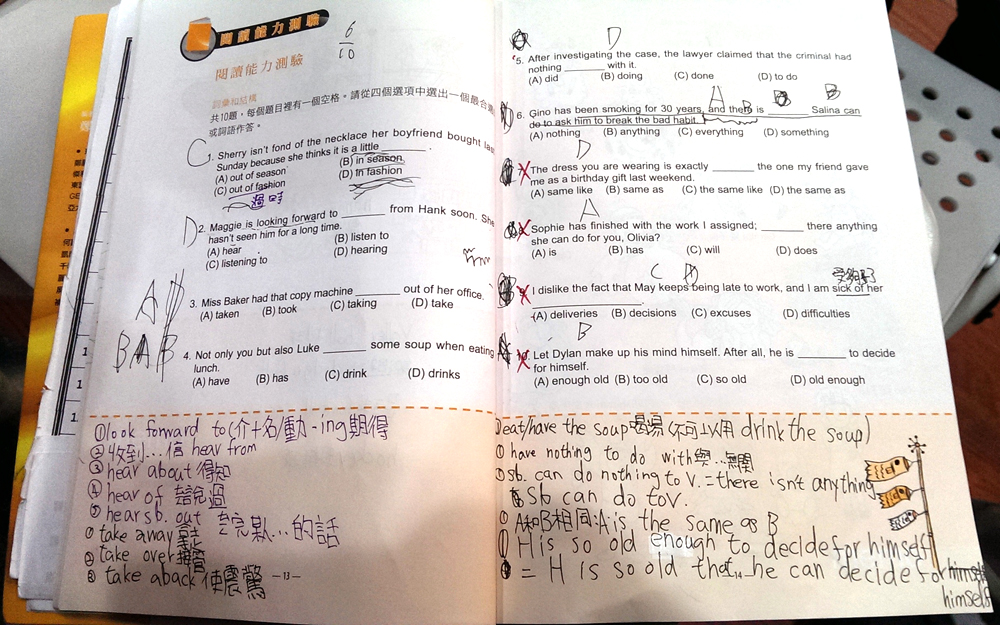 閱讀能力測驗
6
10
閱讀能力測驗
詞彙和結構
共10題，每個題目裡有一個空格。請從四個選項中選出一個最合適
或詞語作答。
C
1. Sherry isn't fond of the necklace her boyfriend bought last
Sunday because she thinks it is a little ______ .
(A) out of season (B) in season
(C) out of fashion (D) in fashion
過時
D
2. Maggie is looking forward to ______ from Hank soon. She
hasn't seen him for a long time.
(A) hear (B) listen to
(C) listening to (D) hearing
A
3. Miss Baker had that copy machine ______ out of her office.
(A) taken (B) took (C) taking (D) take
B A B
4. Not only you but also Luke ______ some soup when eating
lunch.
(A) have (B) has (C) drink (D) drinks
①look forward to(介+名/動-ing期得
②收到...信 hear from
③hear about 得知
④hear of 聽說過
⑤hear sb. out 聽完某...的話
①take away 拿走
②take over 接管
③take aback 使震驚
— 13 —
D
5. After investigating the case, the lawyer claimed that the criminal had
nothing ______ with it.
(A) did (B) doing (C) done (D) to do
A B B
6. Gino has been smoking for 30 years, and there is ______ Salina can
do to ask him to break the bad habit.
(A) nothing (B) anything (C) everything (D) something
D
The dress you are wearing is exactly ______ the one my friend gave
me as a birthday gift last weekend.
(A) same like (B) same as (C) the same like (D) the same as
A
Sophie has finished with the work I assigned; ______ there anything
she can do for you, Olivia?
(A) is (B) has (C) will (D) does
C
I dislike the fact that May keeps being late to work, and I am sick of her
______ .
(A) deliveries (B) decisions (C) excuses (D) difficulties
B
10. Let Dylan make up his mind himself. After all, he is ______ to decide
for himself.
(A) enough old (B) too old (C) so old (D) old enough
eat/have the soup喝湯(不可以用 drink the soup)
have nothing to do with與...無關
sb. can do nothing to V. = there isn't anything
sb can do to V.
A和B相同:A is the same as B
H is so old enough to decide for himself
= H is so old that he can decide for
himself